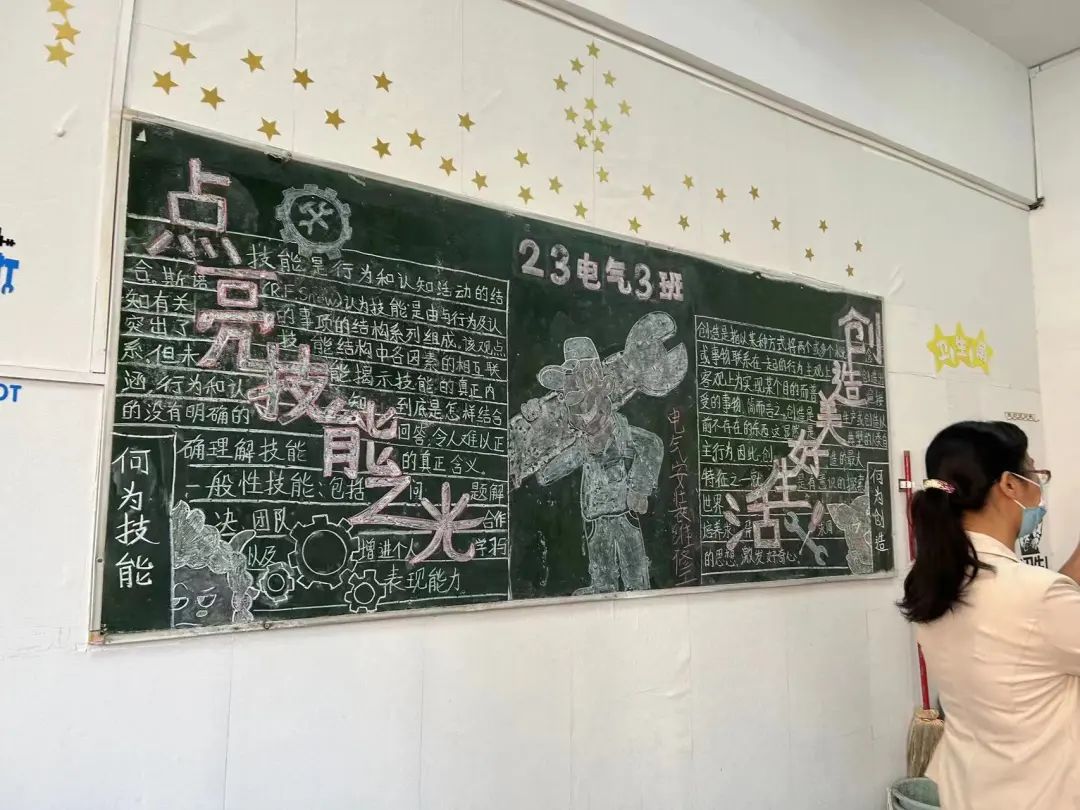 点亮技能之光
技能是行为和认知活动的结
合.斯诺(R.E.Snow)认为技能是由与行为及认
知有关的事项的结构系列组成。该观点
突出了技能结构中各因素的相互联
系,但未能揭示技能的真正内
涵,行为和认知到底是怎样结合
的没有明确的回答,令人难以正
确理解技能的真正含义。
一般性技能、包括问题解
决、团队合作
以及增进个人学习与
表现能力
何为技能
23电气3班
电气安装维修工
创造美好生活
创造是指以某种方式将两个或多个
或事物联系在一起的行为主观上
客观上为实现某个目的而
受的事物,简而言之,创造是
前不存在的东西
主行为因此,创造的最大
特征之一就是有意识的探索
世界
的思想,激发好奇心。
何为创造
卫生角